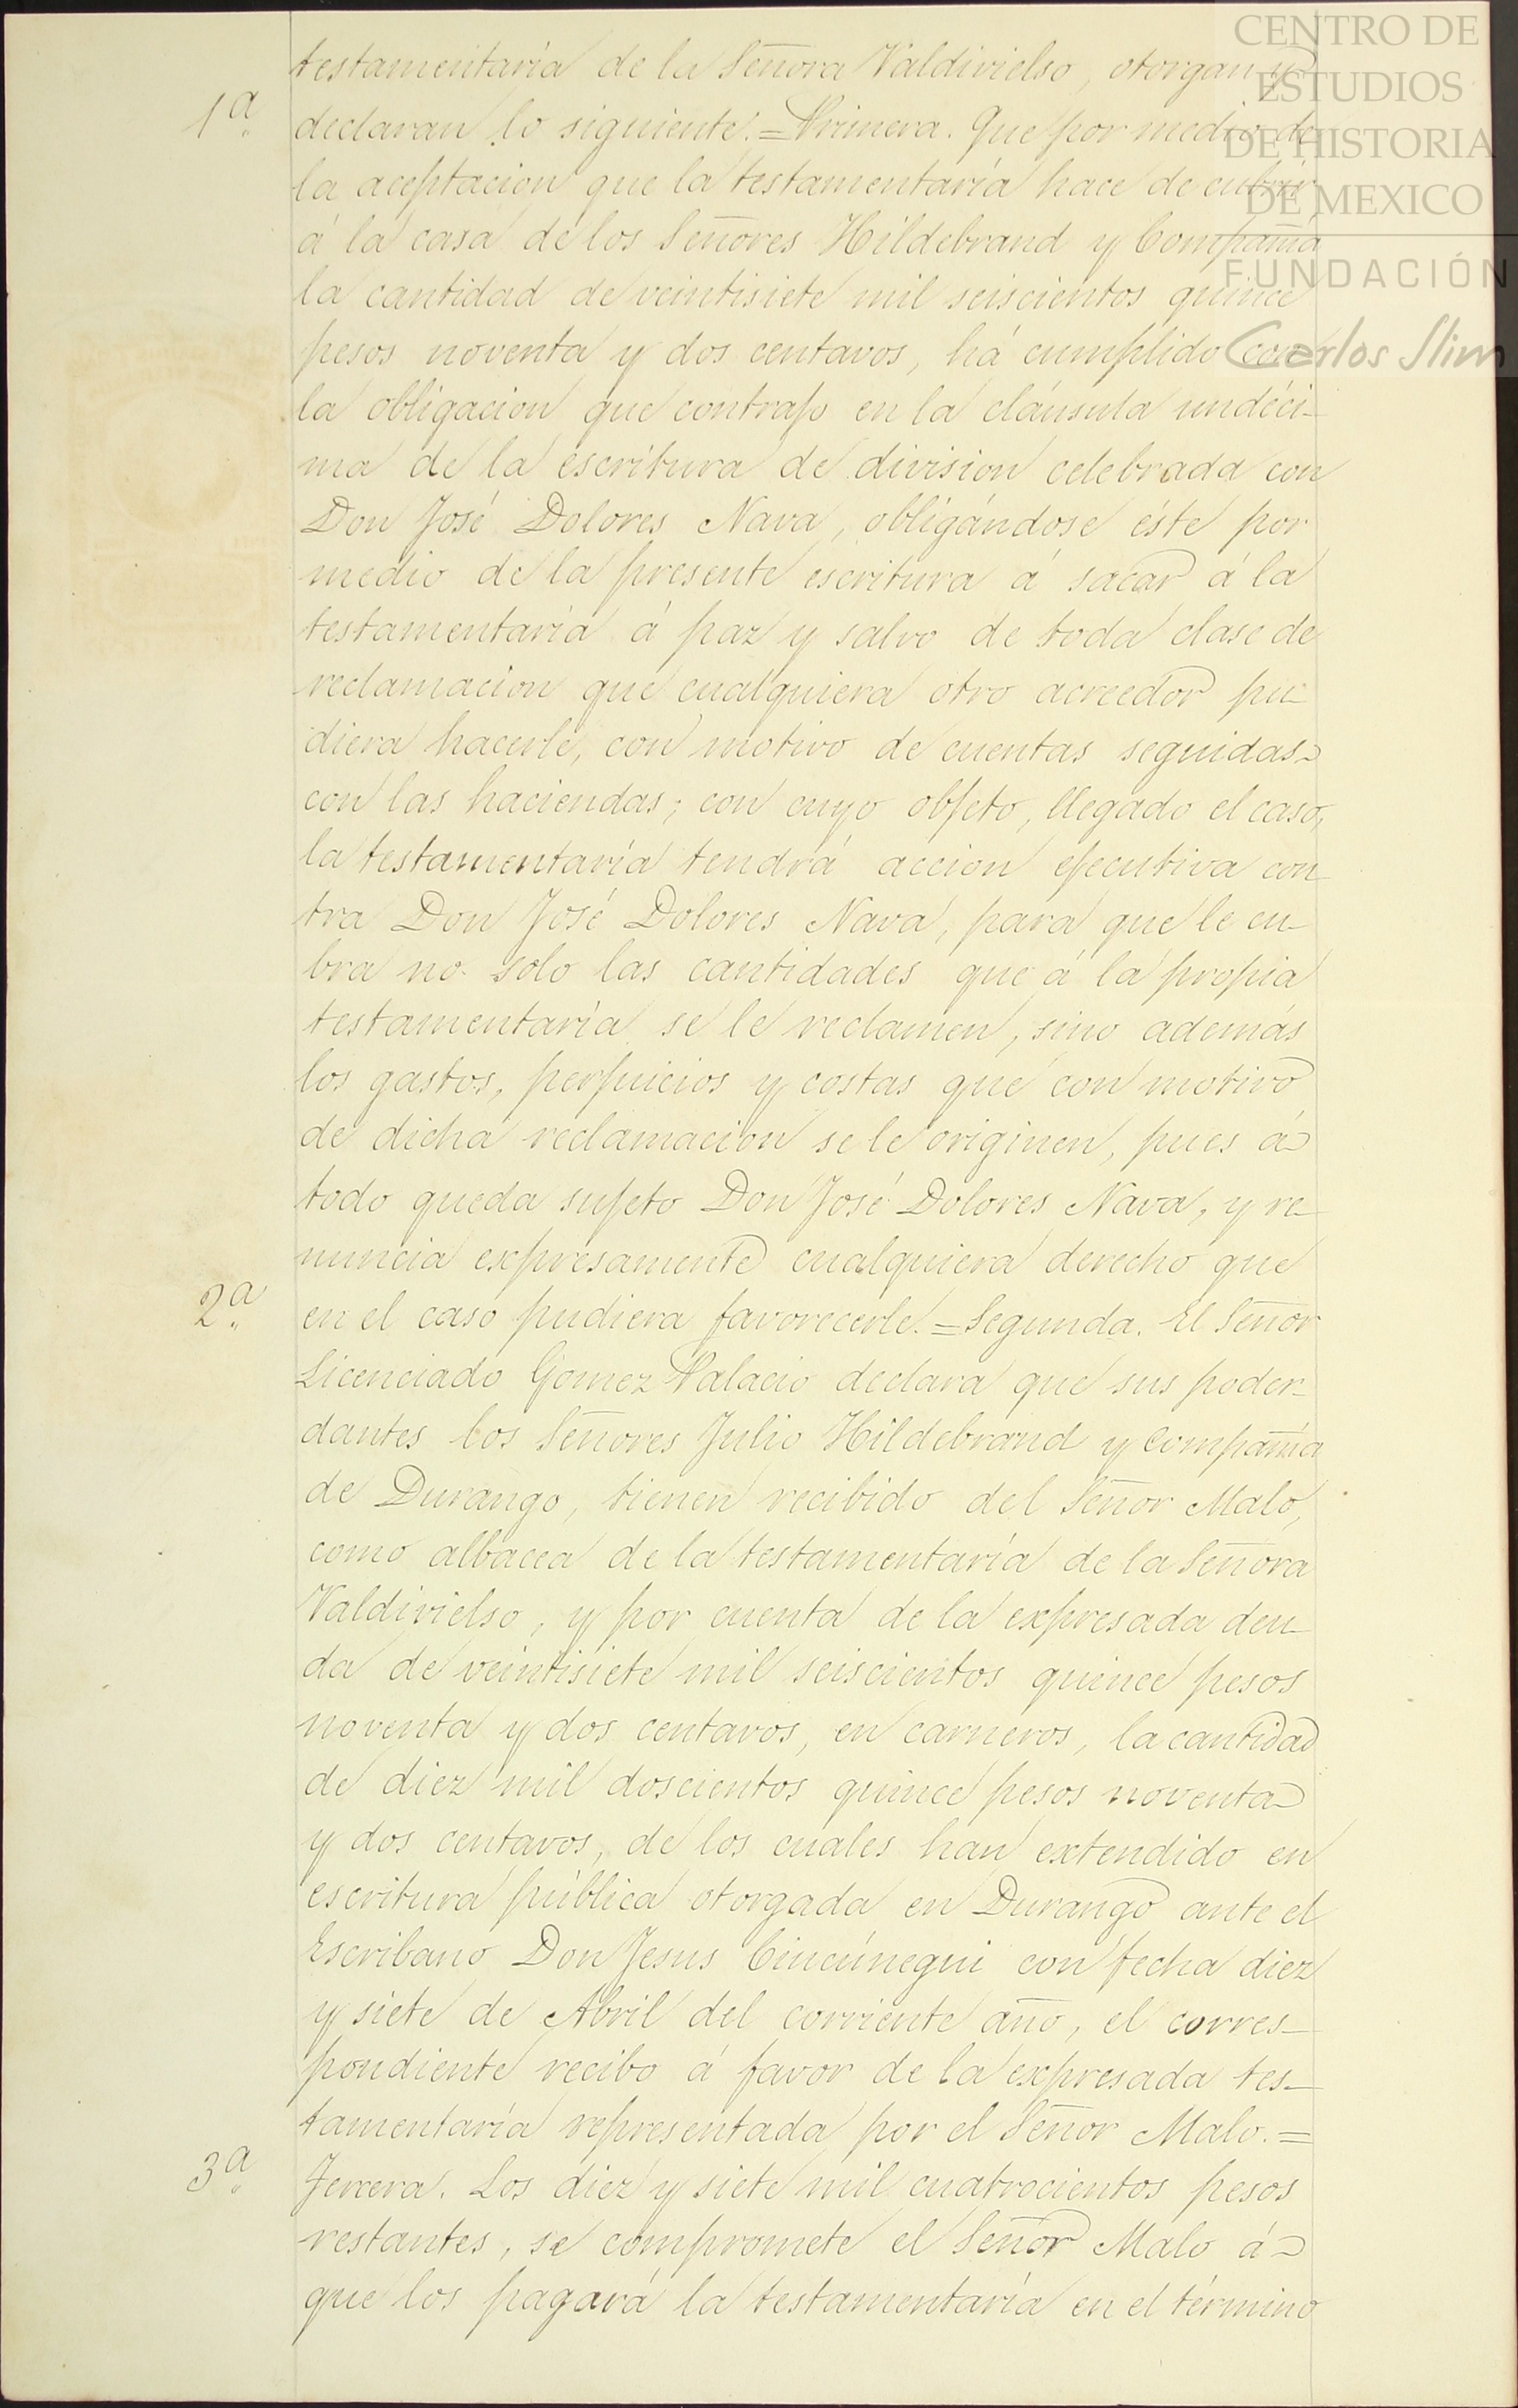 CENTRO DE
ESTUDIOS
DE HISTORIA
DE MEXICO
FUNDACIÓN
Carlos Slim
testamentaría de la Señora Valdivielso, otorgan y
1ª declaran lo siguiente.=Primera. Que por medio de
la aceptacion que la testamentaría hace de cubrir
á la casa de los Señores Hildebrand y Compañía
la cantidad de veintisiete mil seiscientos quince
pesos noventa y dos centavos, há cumplido con
la obligacion que contrajo en la cláusula undéci-
ma de la escritura de division celebrada con
Don José Dolores Nava, obligándose éste por
medio de la presente escritura á sacar á la
testamentaría á paz y salvo de toda clase de
reclamacion que cualquiera otro acreedor pu-
diera hacerle, con motivo de cuentas seguidas
con las haciendas; con cuyo objeto, llegado el caso,
la testamentaría tendrá accion ejecutiva con-
tra Don José Dolores Nava, para que le cu-
bra no solo las cantidades que á la propia
testamentaría se le reclamen, sino además
los gastos, perjuicios y costas que con motivo
de dicha reclamacion se le originen, pues á
todo queda sujeto Don José Dolores Nava, y re-
nuncia expresamente cualquiera derecho que
2ª en el caso pudiera favorecerle.=Segunda. El Señor
Licenciado Gomez Palacio declara que sus poder-
dantes los Señores Julio Hildebrand y Compañía
de Durango, tienen recibido del Señor Malo,
como albacea de la testamentaría de la Señora
Valdivielso, y por cuenta de la expresada deu-
da de veintisiete mil seiscientos quince pesos
noventa y dos centavos, en carneros, la cantidad
de diez mil doscientos quince pesos noventa
y dos centavos, de los cuales han extendido en
escritura pública otorgada en Durango ante el
Escribano Don Jesus Cincúnegui con fecha diez
y siete de Abril del corriente año, el corres-
pondiente recibo á favor de la expresada tes-
tamentaría representada por el Señor Malo.=
3ª Tercera. Los diez y siete mil cuatrocientos pesos
restantes, se compromete el Señor Malo á
que los pagará la testamentaría en el término